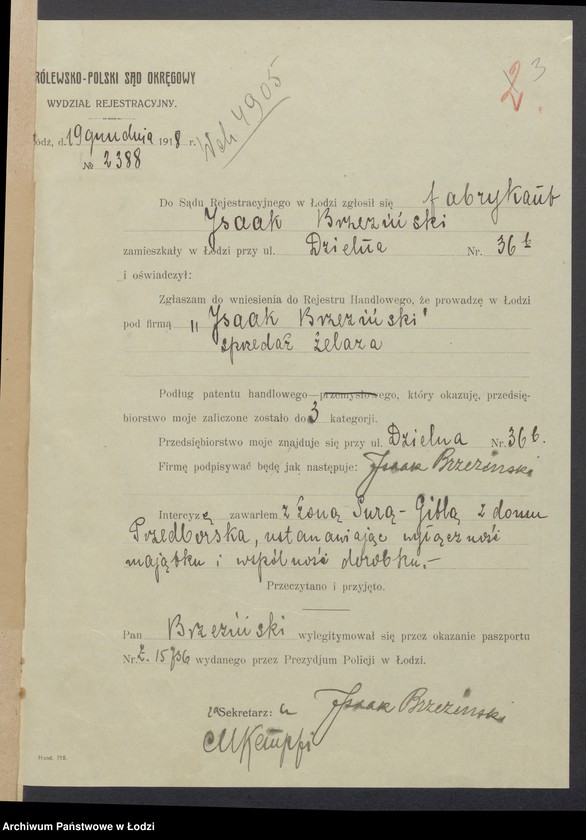 2 3
RÓLEWSKO-POLSKI SĄD OKRĘGOWY
WYDZIAŁ REJESTRACYJNY.
ódź, d. 19 grudnia 1918 r.
№ 2388
4905
Do Sądu Rejestracyjnego w Łodzi zgłosił się fabrykant
Isaak Brzeziński
zamieszkały w Łodzi przy ul. Dzielna Nr. 36 b
i oświadczył:
Zgłaszam do wniesienia do Rejestru Handlowego, że prowadzę w Łodzi
pod firmą „Isaak Brzeziński"
sprzedaż żelaza
Podług patentu handlowego—przemysłowego, który okazuję, przedsię-
biorstwo moje zaliczone zostało do 3 kategorji.
Przedsiębiorstwo moje znajduje się przy ul. Dzielna Nr. 36 b.
Firmę podpisywać będę jak następuje: Isaak Brzezinski
Intercyzę zawarłem z żoną Surą-Gitlą z domu
Przedborska, ustanawiając wyłączność
majątku i wspólność dorobku.—
Przeczytano i przyjęto.
Pan Brzeziński wylegitymował się przez okazanie paszportu
Nr. Ł. 15736 wydanego przez Prezydjum Policji w Łodzi.
za Sekretarz: Isaak Brzezinski
Hand. 718.
Archiwum Państwowe w Łodzi